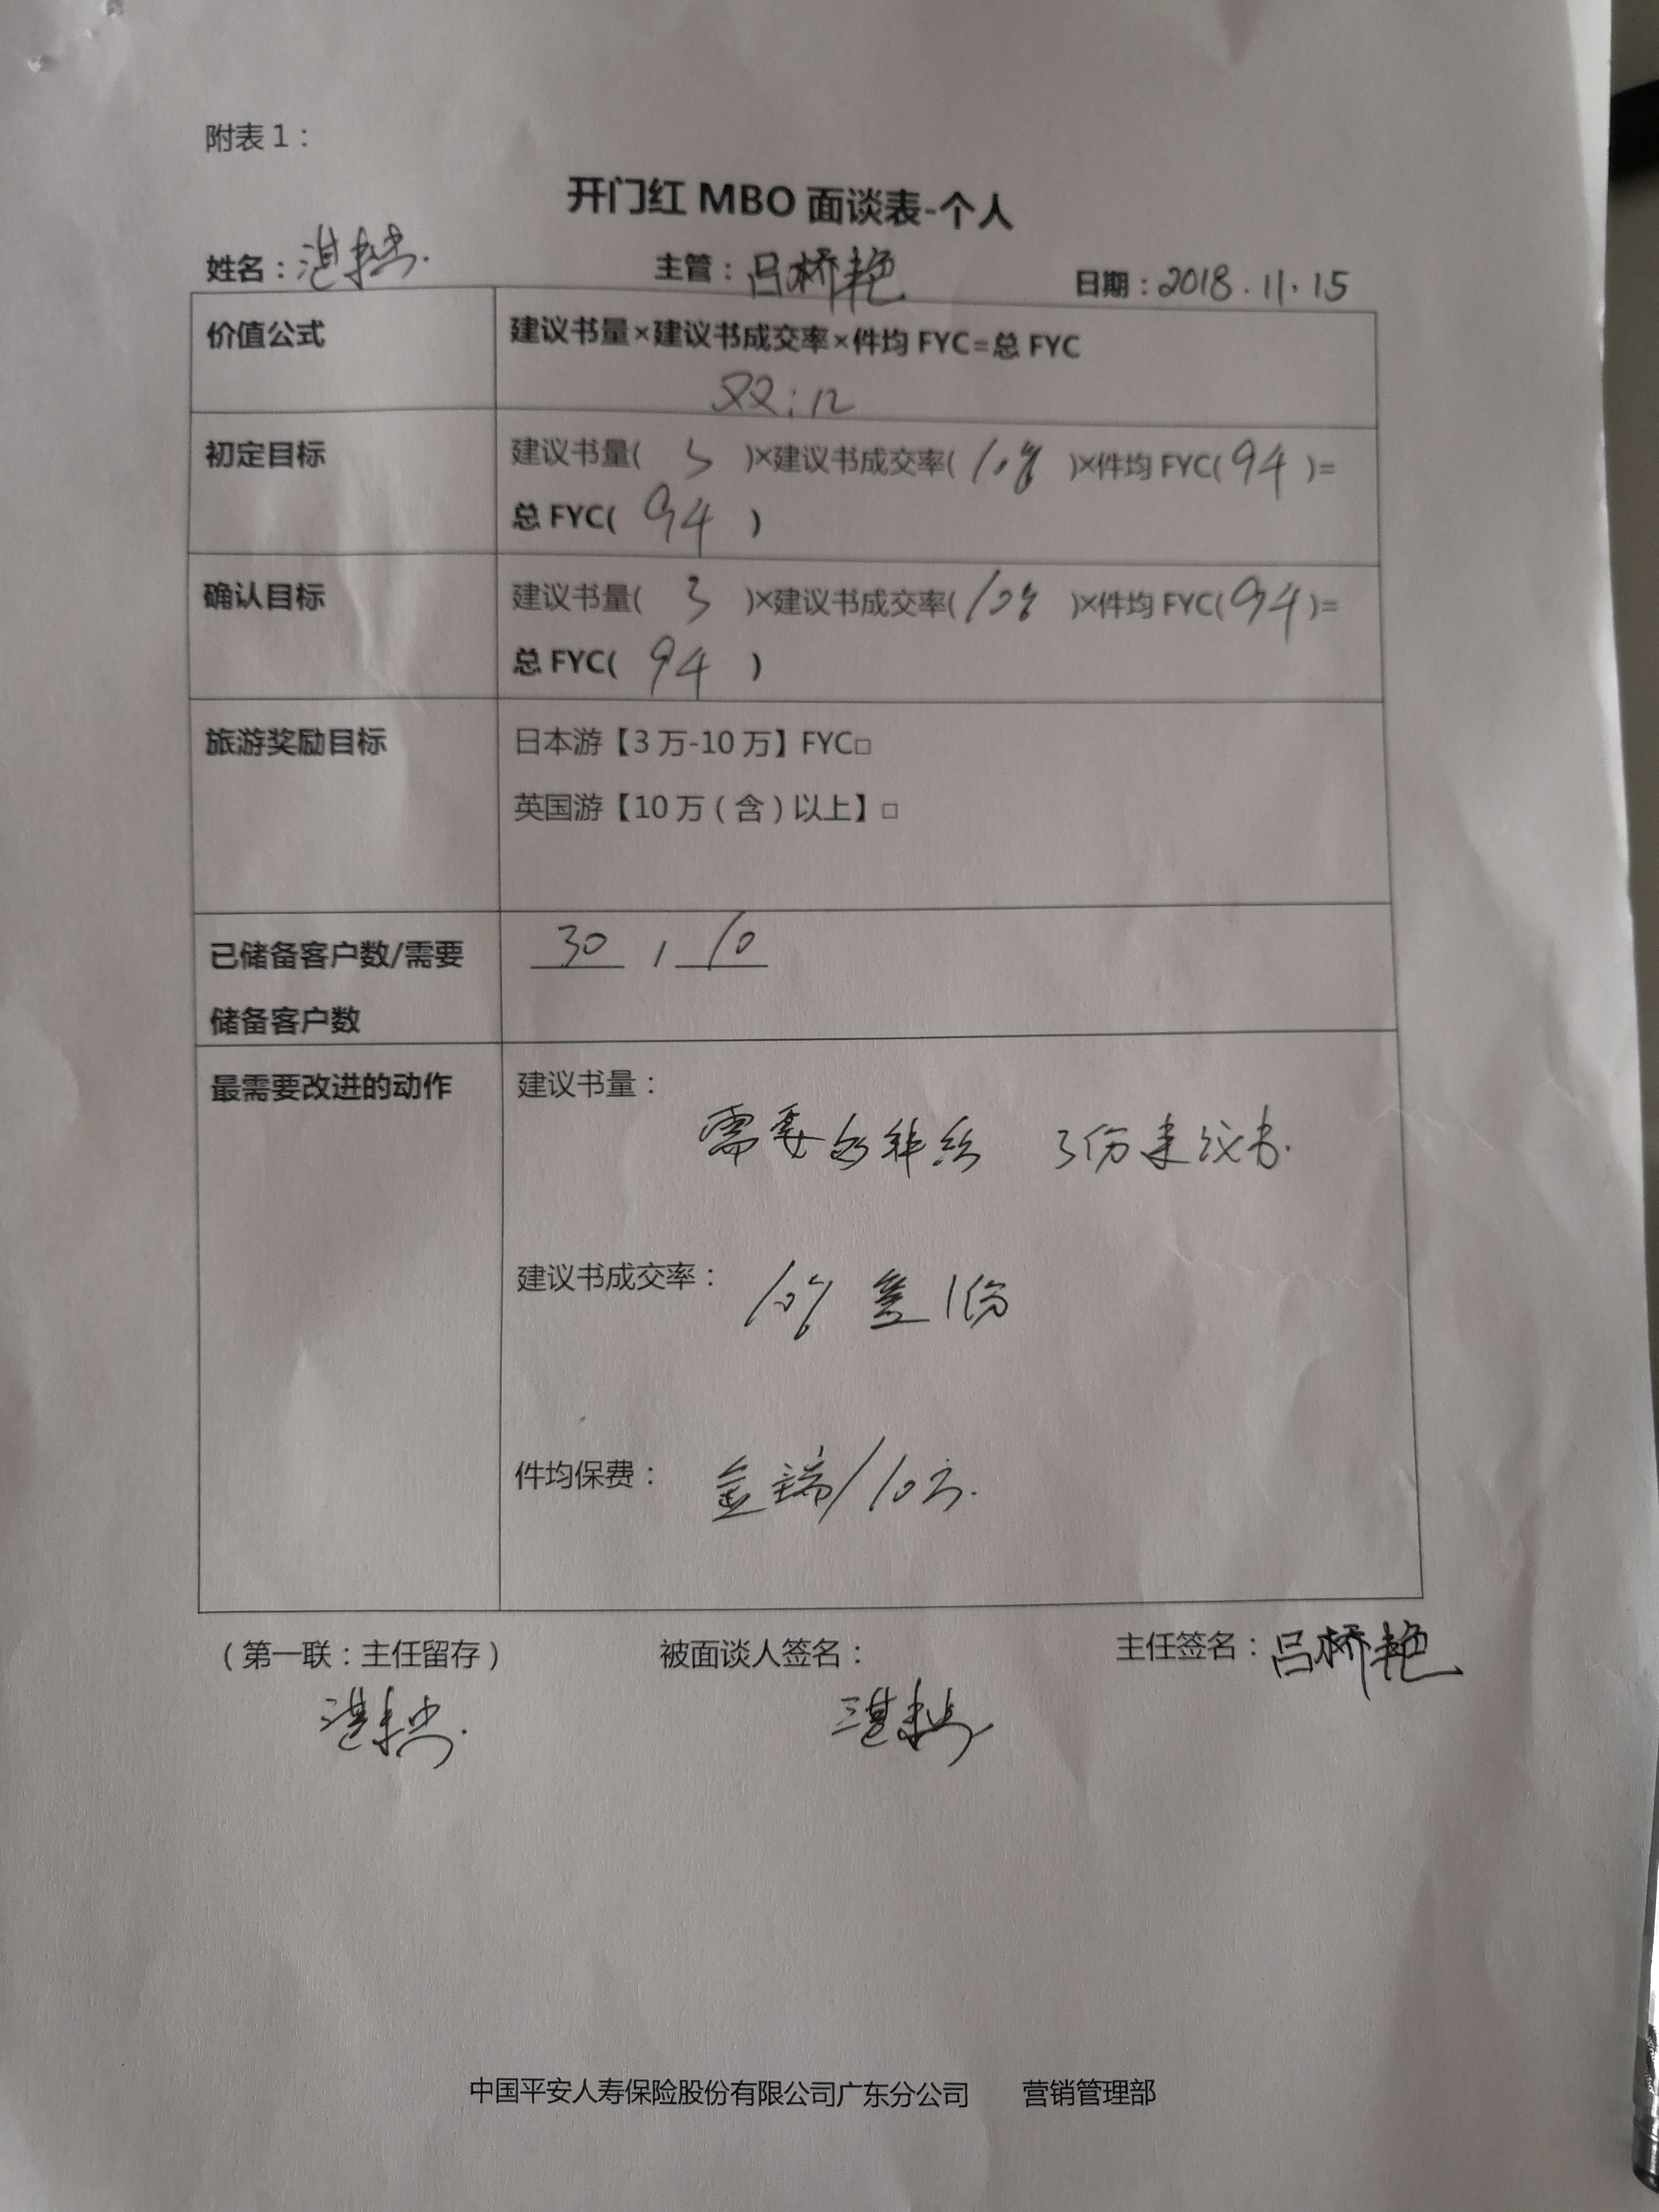 附表1：
开门红 MBO 面谈表-个人
姓名： 主管：吕桥艳 日期：2018.11.15
价值公式 建议书量×建议书成交率×件均 FYC=总 FYC
双：12
初定目标 建议书量( )×建议书成交率(10%)×件均 FYC(94)=
总 FYC(94)
确认目标 建议书量(3)×建议书成交率(10%)×件均 FYC(94)=
总 FYC(94)
旅游奖励目标 日本游【3 万-10 万】FYC□
英国游【10 万（含）以上】□
已储备客户数/需要 30 / 10
储备客户数
最需要改进的动作 建议书量：
需要 3份建议书.
建议书成交率：10% 1份
件均保费：金瑞/10万.
（第一联：主任留存） 被面谈人签名： 主任签名：吕桥艳
中国平安人寿保险股份有限公司广东分公司 营销管理部